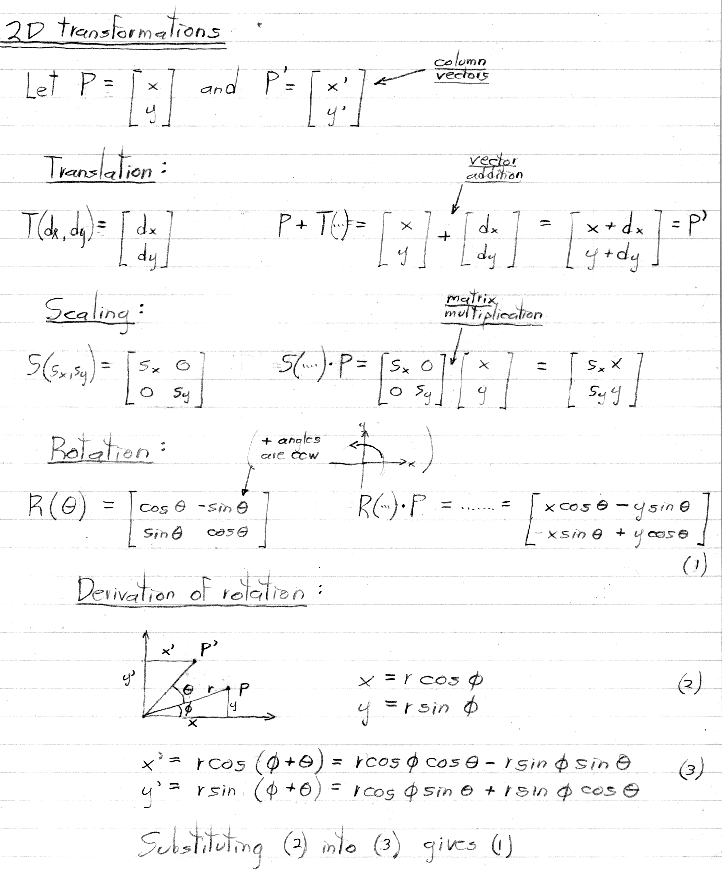 2D transformations
Let P = [x y] and P' = [x' y'] column vectors
Translation:
vector addition
T(dx, dy) = [dx dy] P + T(...) = [x y] + [dx dy] = [x + dx y + dy] = P'
Scaling:
matrix multiplication
S(sx, sy) = [sx 0 0 sy] S(...)·P = [sx 0 0 sy] [x y] = [sx x sy y]
Rotation:
(+ angles are ccw y x)
R(θ) = [cosθ -sinθ sinθ cosθ] R(...)·P = ....... = [x cosθ - y sinθ -x sinθ + y cosθ]
(1)
Derivation of rotation:
x' P'
y' θ r P
φ y
x
x = r cos φ (2)
y = r sin φ
x' = r cos (φ+θ) = r cos φ cos θ - r sin φ sin θ (3)
y' = r sin (φ+θ) = r cos φ sin θ + r sin φ cos θ
Substituting (2) into (3) gives (1)